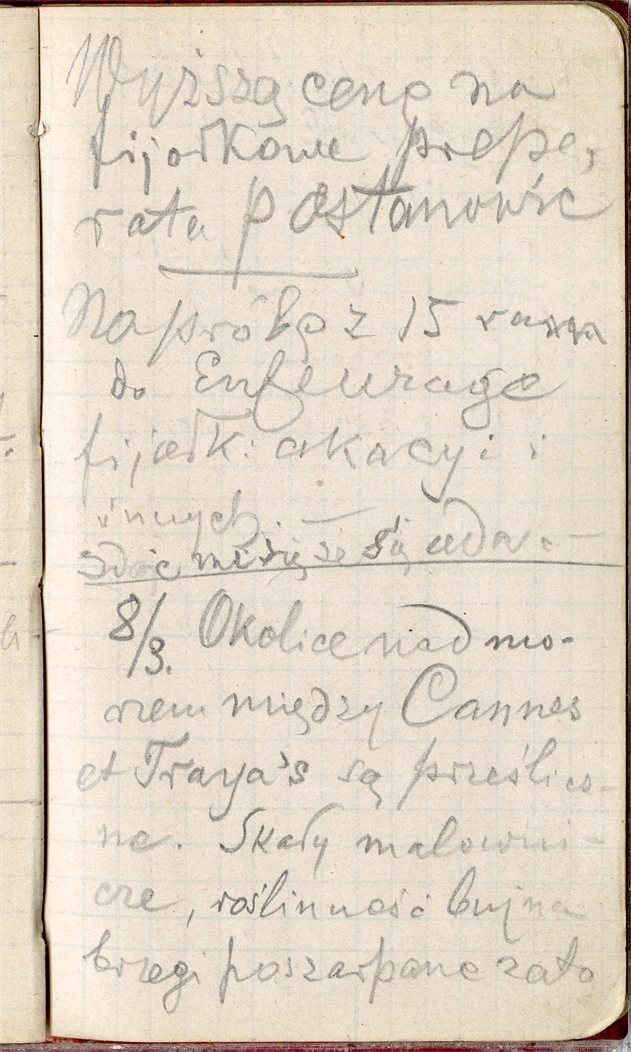 Wyższą cenę na
fijołkowe prepe,
rata postanowić
Na próbę z 15 ramm
do Enfleurage
fijołki akacyi i
innych. —
zdaje mi się że się uda. —
8/3. Okolice nad mo-
rzem między Cannes
et Traya's są prześlicz-
ne. Skały malowni-
cze, roślinność bujna
brzegi poszarpane zato